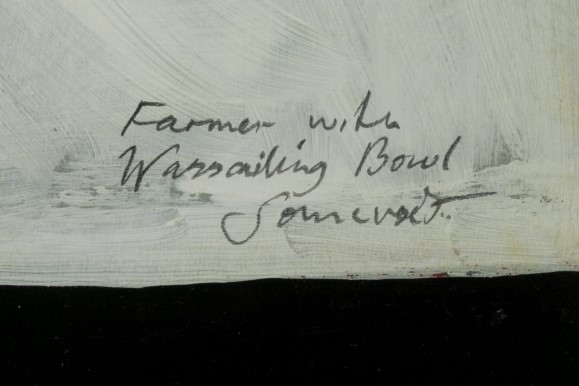 Farmer with
Wassailing Bowl
Somerset.